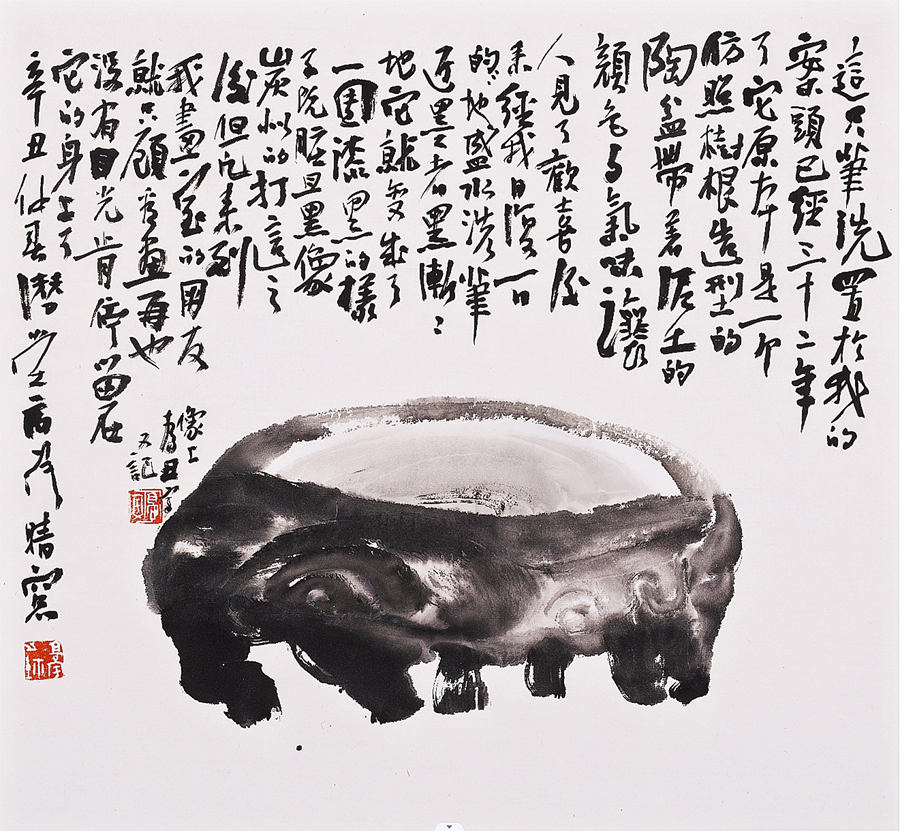 這只筆洗置於我的
案頭已經三十二年
了它原本是一个
仿照樹根造型的
陶盆帶着泥土的
顏色与氣味讓
人見了歡喜後
来經我日復一日
的地盛水洗筆
近墨者黑漸々
地它就变成了
一團漆黑的樣
子既脏且黑像
炭似的打這之
後但凡来到
我畫室的朋友
就只顧看畫再也
沒有目光肯停留在
它的身上了
辛丑仲春潛堂
晴窗
像上
又記